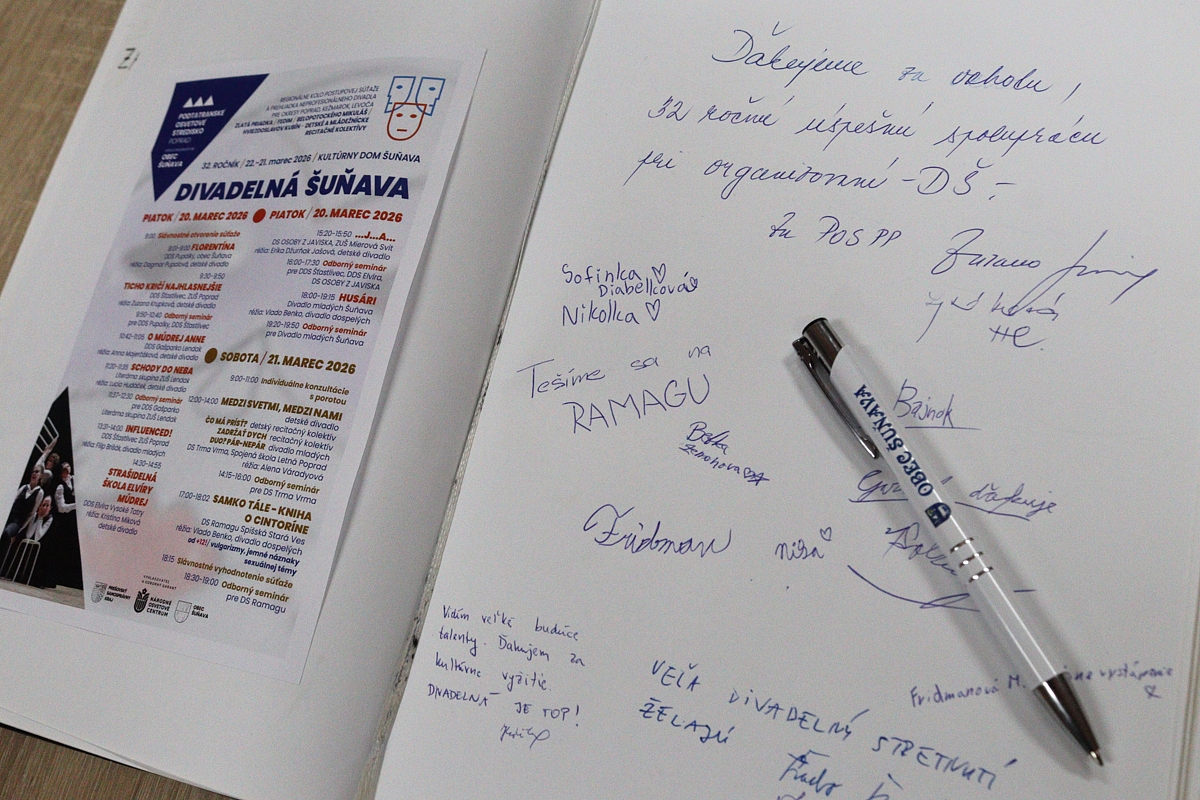 PODTATRANSKÉ
OSVETOVÉ
STREDISKO
POPRAD
OBEC
ŠUŇAVA
REGIONÁLNE KOLO POSTUPOVEJ SÚŤAŽE
A PREHLIADKA NEPROFESIONÁLNEHO DIVADLA
PRE OKRESY POPRAD, KEŽMAROK, LEVOČA
ZLATÁ PRIADKA / FEDIM / BELOPOTOCKÉHO MIKULÁŠ /
HVIEZDOSLAVOV KUBÍN - DETSKÉ A MLÁDEŽNÍCKE
RECITAČNÉ KOLEKTÍVY
32. ROČNÍK / 22.-21. marec 2026 / KULTÚRNY DOM ŠUŇAVA
DIVADELNÁ ŠUŇAVA
PIATOK / 20. MAREC 2026
9:00 Slávnostné otvorenie súťaže
FLORENTÍNA
DDS Pupalky, obec Šuňava
réžia: Dagmar Pupalová, detské divadlo
9:30-9:50
TICHO KRIČÍ NAJHLASNEJŠIE
DDS Šťastlivec, ZUŠ Poprad
réžia: Zuzana Krupková, detské divadlo
9:50-12:40 Odborný seminár
pre DDS Pupalky, DDS Šťastlivec
O MÚDREJ ANNE
DDS Gašparko Lendak
réžia: Anna Majerčáková, detské divadlo
SCHODY DO NEBA
Literárna skupina ZUŠ Lendak
réžia: Lucia Hudáček, detské divadlo
Odborný seminár
pre DDS Gašparko
Literárna skupina ZUŠ Lendak
INFLUENCED!
DDS Šťastlivec ZUŠ Poprad
réžia: Filip Brišák, divadlo mladých
14:30-14:55
STRAŠIDELNÁ
ŠKOLA ELVÍRY
MÚDREJ
DDS Elvíra Vysoké Tatry
réžia: Kristína Miková
detské divadlo
PIATOK / 20. MAREC 2026
15:20-15:50 ...J...A...
DS OSOBY Z JAVISKA, ZUŠ Mierová Svit
réžia: Erika Džurňak Jašová, detské divadlo
16:00-17:30 Odborný seminár
pre DDS Šťastlivec, DDS Elvíra,
DS OSOBY Z JAVISKA
18:00-19:15 HUSÁRI
Divadlo mladých Šuňava
réžia: Vlado Benko, divadlo dospelých
19:20-19:50 Odborný seminár
pre Divadlo mladých Šuňava
SOBOTA / 21. MAREC 2026
9:00-11:00 Individuálne konzultácie
s porotou
12:00-14:00 MEDZI SVETMI, MEDZI NAMI
detské divadlo
ČO MÁ PRÍSŤ? detský recitačný kolektív
ZADRŽAŤ DYCH recitačný kolektív
DUO? PÁR-NEPÁR divadlo mladých
DS Trma Vrma, Spojená škola Letná Poprad
réžia: Alena Váradyová
14:15-16:00 Odborný seminár
pre DS Trma Vrma
17:00-18:02 SAMKO TÁLE - KNIHA
O CINTORÍNE
DS Ramagu Spišská Stará Ves
réžia: Vlado Benko, divadlo dospelých
od +12!/ vulgarizmy, jemné náznaky
sexuálnej témy
18:15 Slávnostné vyhodnotenie súťaže
18:30-19:00 Odborný seminár
pre DS Ramagu
PREŠOVSKÝ
SAMOSPRÁVNY
KRAJ
NÁRODNÉ
OSVETOVÉ
CENTRUM
OBEC
ŠUŇAVA
Ďakujeme za ochotu!
32 ročnú úspešnú spoluprácu
pri organizovaní - DŠ -
Za POS PP
Sofinka ♡
Diabelcová
Nikolka ♡
Tešíme sa na
RAMAGU
Bajnok
OBEC ŠUŇAVA
ďakuje
Fridman
nisa ♡
Vidím veľké budúce
talenty. Ďakujem za
kultúrne vyžitie.
DIVADELNÁ JE TOP!
VEĽA DIVADELNÝ STRETNUTÍ
ŽELAJÚ
Fridmanová M.